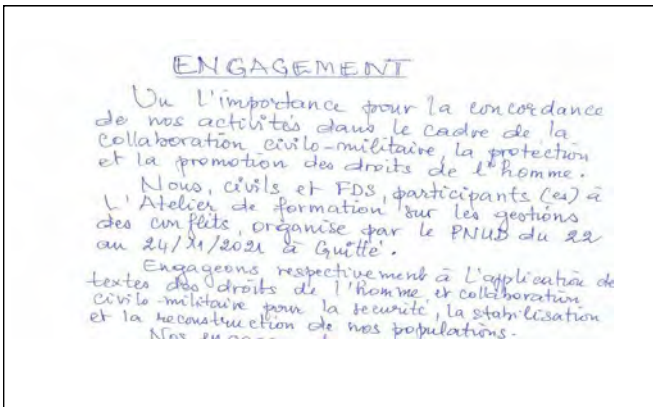 ENGAGEMENT
Vu l'importance pour la concordance
de nos activités dans le cadre de la
collaboration civilo-militaire, la protection
et la promotion des droits de l'homme.
Nous, civils et FDS, participants (es) à
L'Atelier de formation sur les gestions
des conflits, organise par le PNUD du 22
au 24/11/2021 à Guitté.
Engageons respectivement à L'application de
textes des droits de l'homme, et collaboration
civilo-militaire pour la securité, la stabilisation
et la reconstruction de nos populations.
Nos